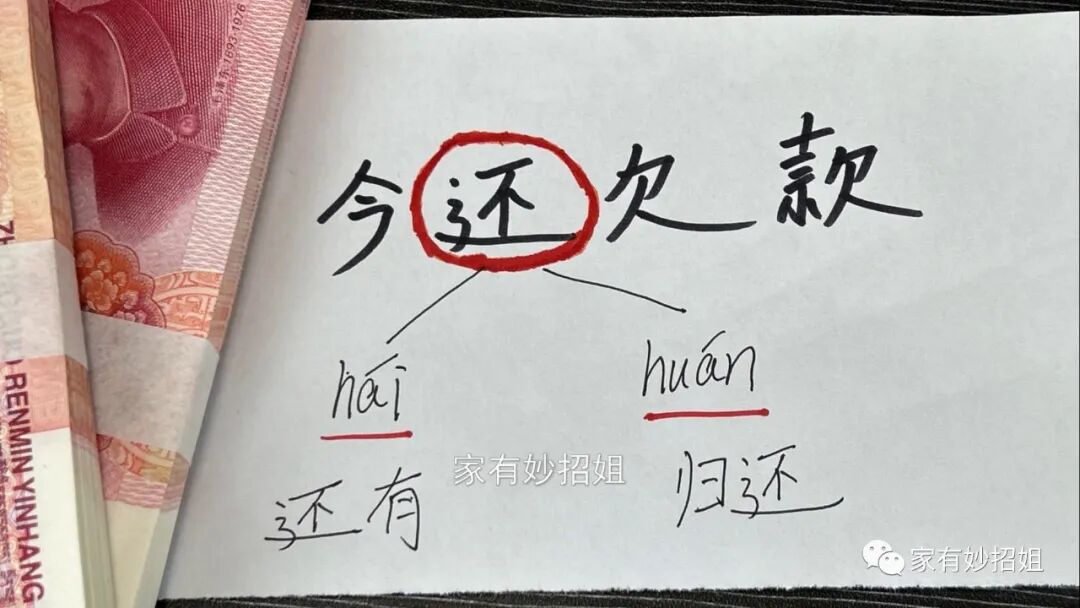 今还欠款
hái huán
还有 归还
家有妙招姐
家有妙招姐
RENMIN YINHANG